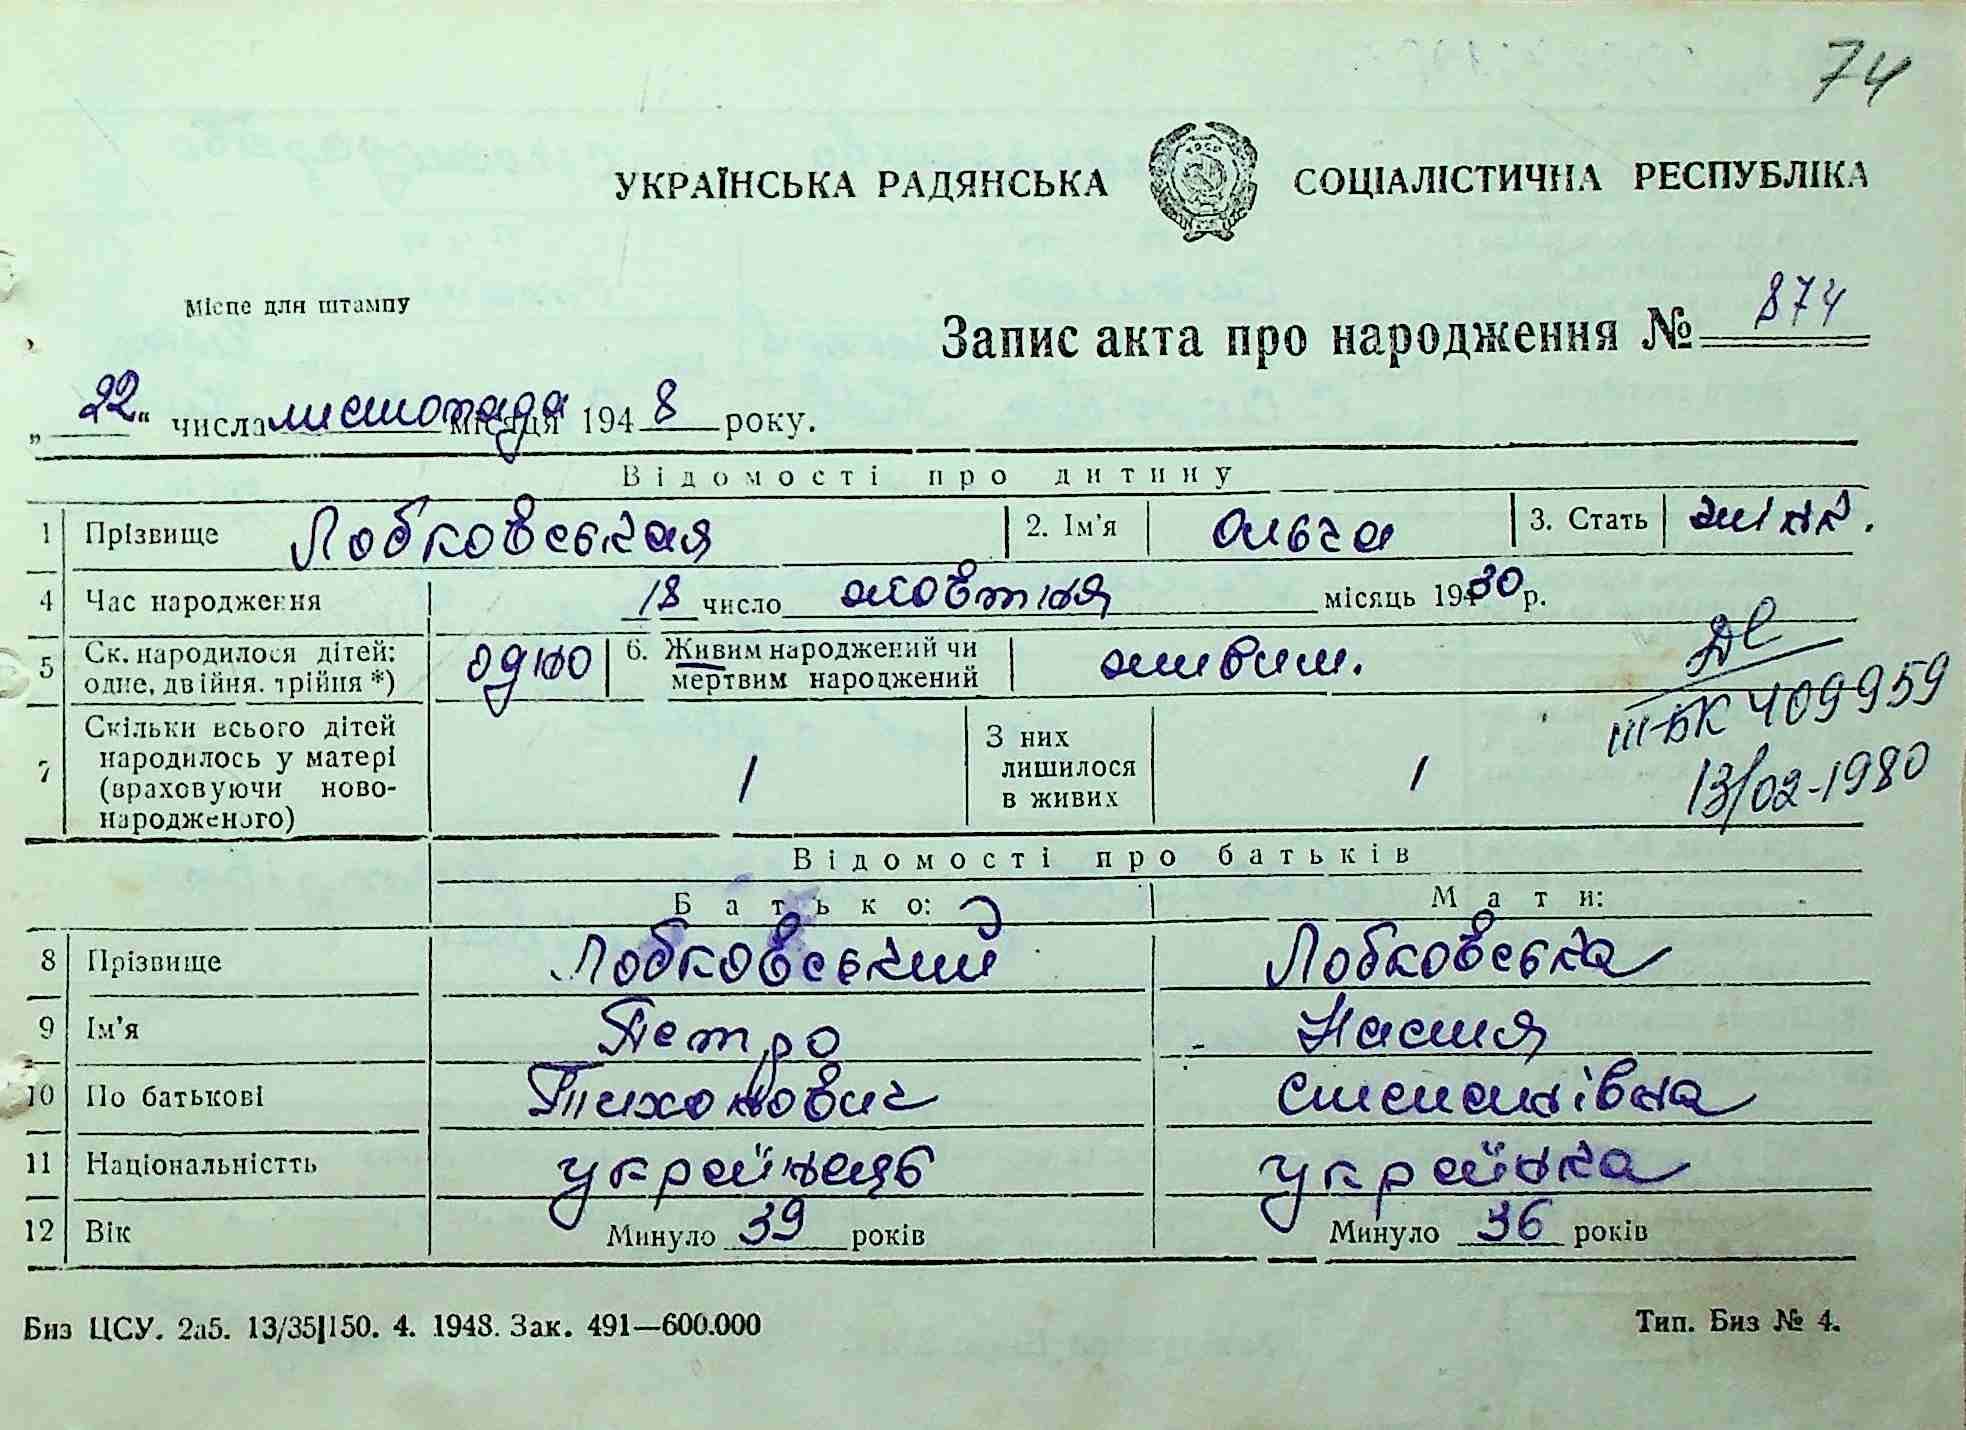 74
УКРАЇНСЬКА РАДЯНСЬКА СОЦІАЛІСТИЧНА РЕСПУБЛІКА
Місце для штампу
Запис акта про народження № 874
„22“ числа листопада місяця 1948 року.
Відомості про дитину
1 Прізвище Лобковськая 2. Ім'я Ольга 3. Стать жін.
4 Час народження 18 число жовтня місяць 1930 р.
5 Ск. народилося дітей: одне, двійня, трійня *) одно 6. Живим народжений чи мертвим народжений живим.
ДС
III-БК 409959
13/02-1980
7 Скільки всього дітей народилось у матері (враховуючи новонародженого) 1 З них лишилося в живих 1
Відомості про батьків
Батько: Мати:
8 Прізвище Лобковський Лобковська
9 Ім'я Петро Настя
10 По батькові Тихонович Степанівна
11 Національністть українець українка
12 Вік Минуло 39 років Минуло 36 років
Биз ЦСУ. 2а5. 13/35|150. 4. 1948. Зак. 491—600.000 Тип. Биз № 4.